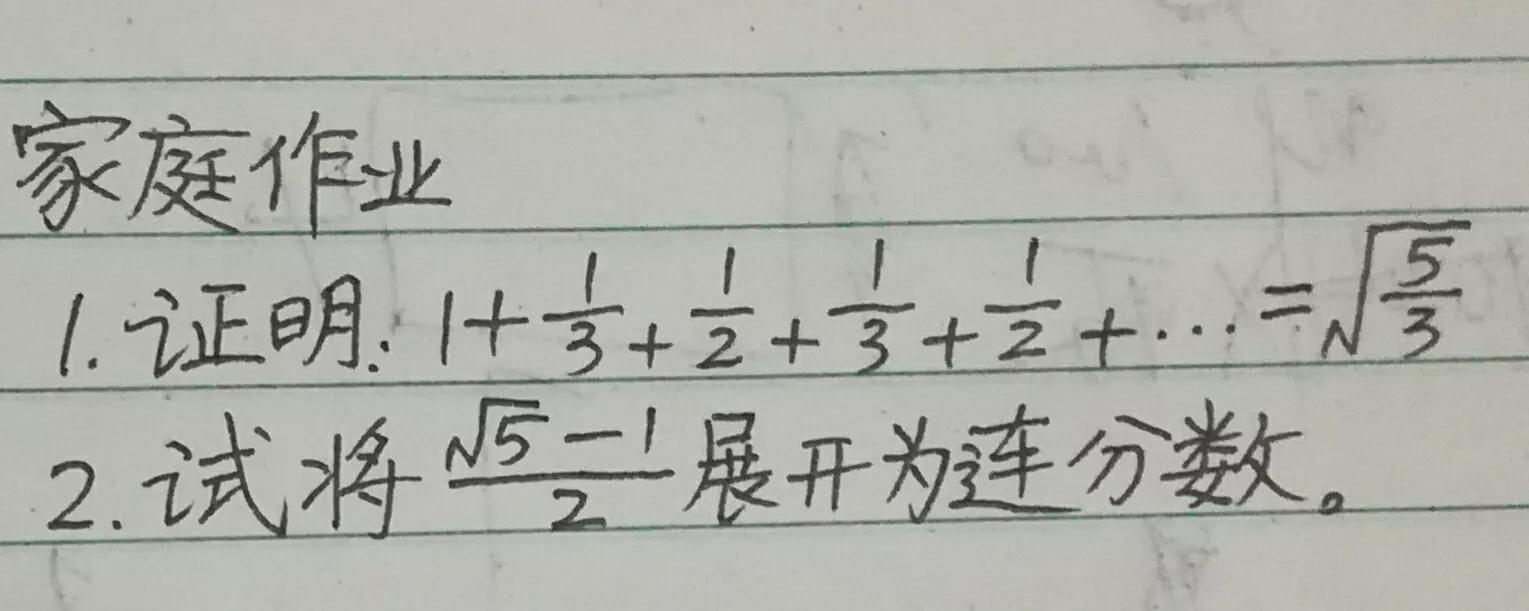 家庭作业
1. 证明: 1 + \frac{1}{3} + \frac{1}{2} + \frac{1}{3} + \frac{1}{2} + \cdots = \sqrt{\frac{5}{3}}
2. 试将 \frac{\sqrt{5}-1}{2} 展开为连分数。